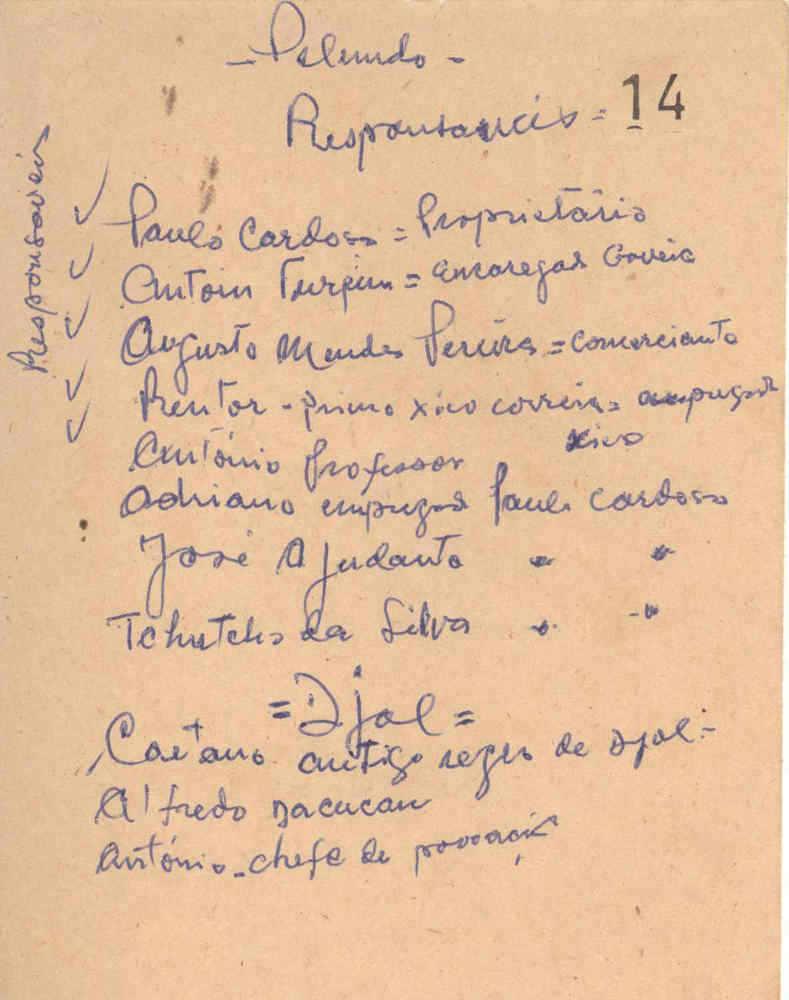 - Pelundo -
Responsaveis = 14
Responsaveis
Paulo Cardoso = Proprietário
Antoin Turpin = encaregad Correio
Augusto Mendes Pereira = comerciante
- primo xico correia = empregad
xico
António Professor
Adriano empregad Paulo Cardoso
José Ajudante " "
da Silva " - "
= Djol =
Caetano antigo regulo de Djol -
Alfredo
António - chefe de povoação